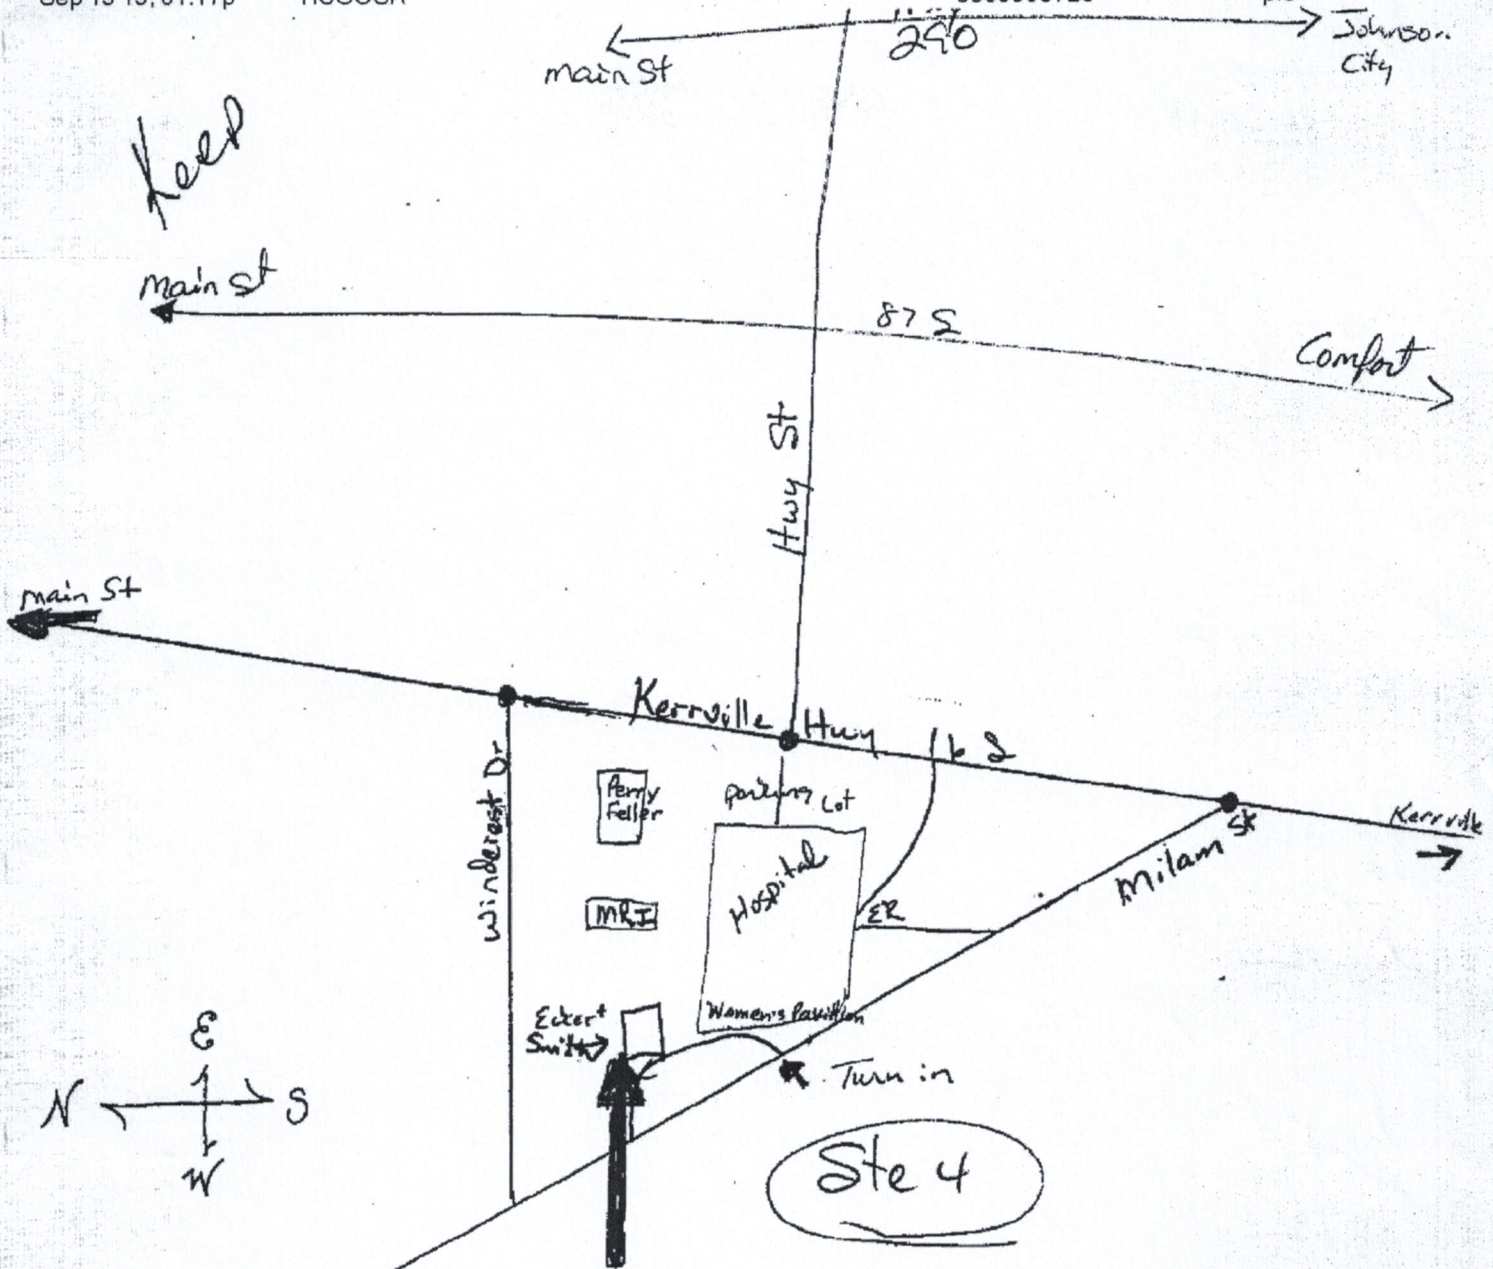 main St
290
Johnson
City
Keep
main St
87 S
Comfort
Hwy St
main St
Kerrville Hwy 16 S
Kerrville
Milam St
Windcrest Dr
Perry
Feller
parking Lot
Hospital
MRI
ER
Women's Pavillion
Eckert
Smith
Turn in
E
N
S
W
Ste 4